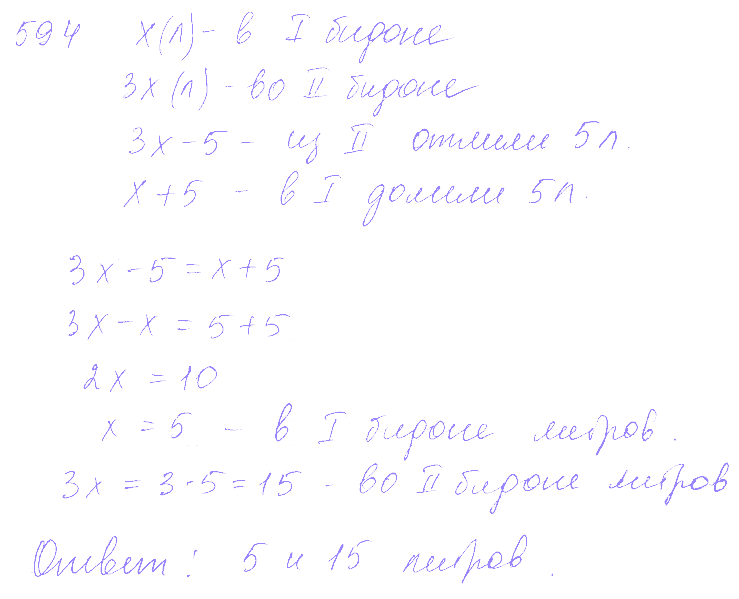 594 x(л) - в I бидоне
3x(л) - во II бидоне
3x - 5 - из II отлили 5 л.
x + 5 - в I долили 5 л.
3x - 5 = x + 5
3x - x = 5 + 5
2x = 10
x = 5 - в I бидоне литров.
3x = 3 · 5 = 15 - во II бидоне литров
Ответ: 5 и 15 литров.